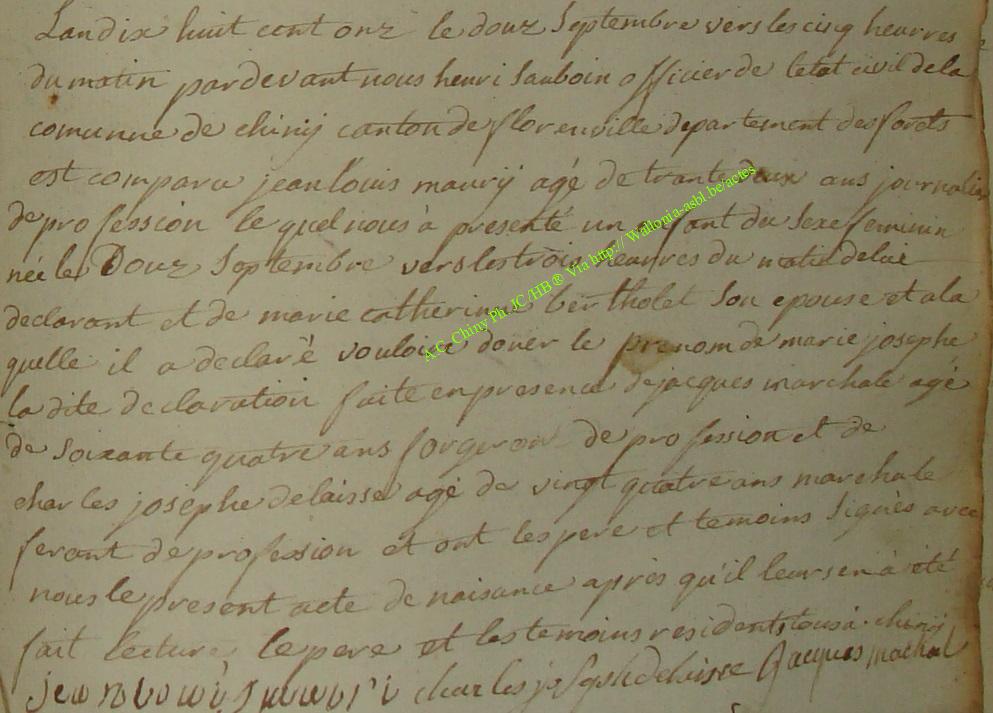 Landix huit cent onz le douz Septembre vers les cinq heurres
du matin pardevant nous henri Sauboin officier de letat civil de la
comunne de chinij canton de florenville departement des forets
est comparu jean louis maurij agé de trante deux ans journalie
de profession le quel nous à presenté un enfant du Sexe feminin
née le Douz Septembre vers les trois heurres du matin de lui
declarant et de marie catherinne bertholet Son epouse et a la
quelle il a declaré vouloir doner le prenom de marie josephe
la dite declaration faite en presence de jacques marchale agé
de soixante quatre ans forgeron de profession et de
charles josephe delaisse agé de vingt quatre ans marchale
ferant de profession et ont les pere et temoins Signés avec
nous le present acte de naisance après qu'il leurs en à été
fait lecture le pere et les temoins residents tous à chinij
jean louis mauri charles josephe delaisse Jacques machal
A.C. Chiny Ph JC/HB ® Via http:// Wallonia-asbl.be/actes